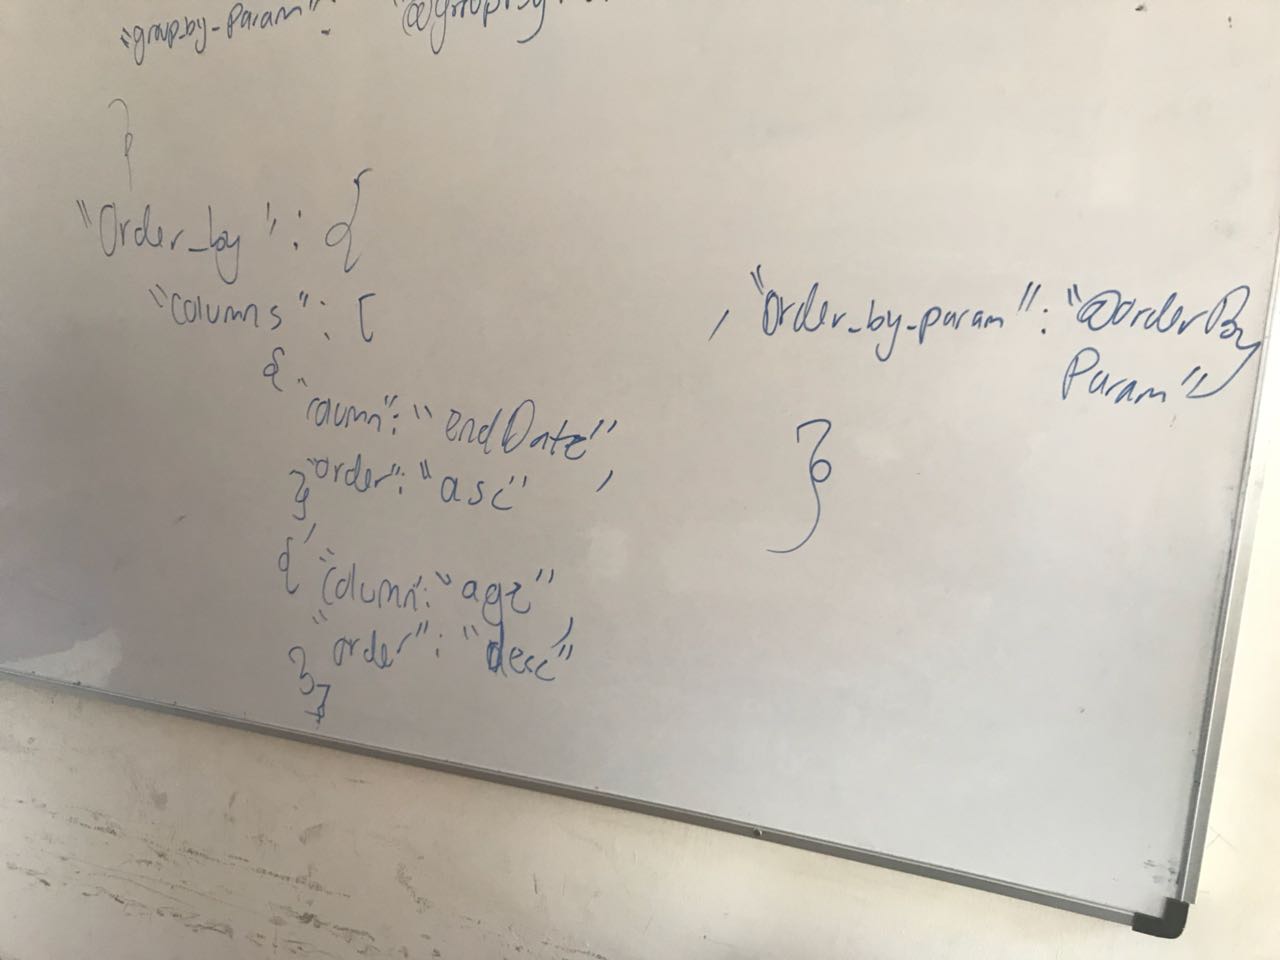 "group_by-param":
}
"Order_by": {
"columns": [
{
"column": "endDate",
"order": "asc"
},
{ "column": "age",
"order": "desc"
}]
, "order_by-param": "@orderBy
Param"
}